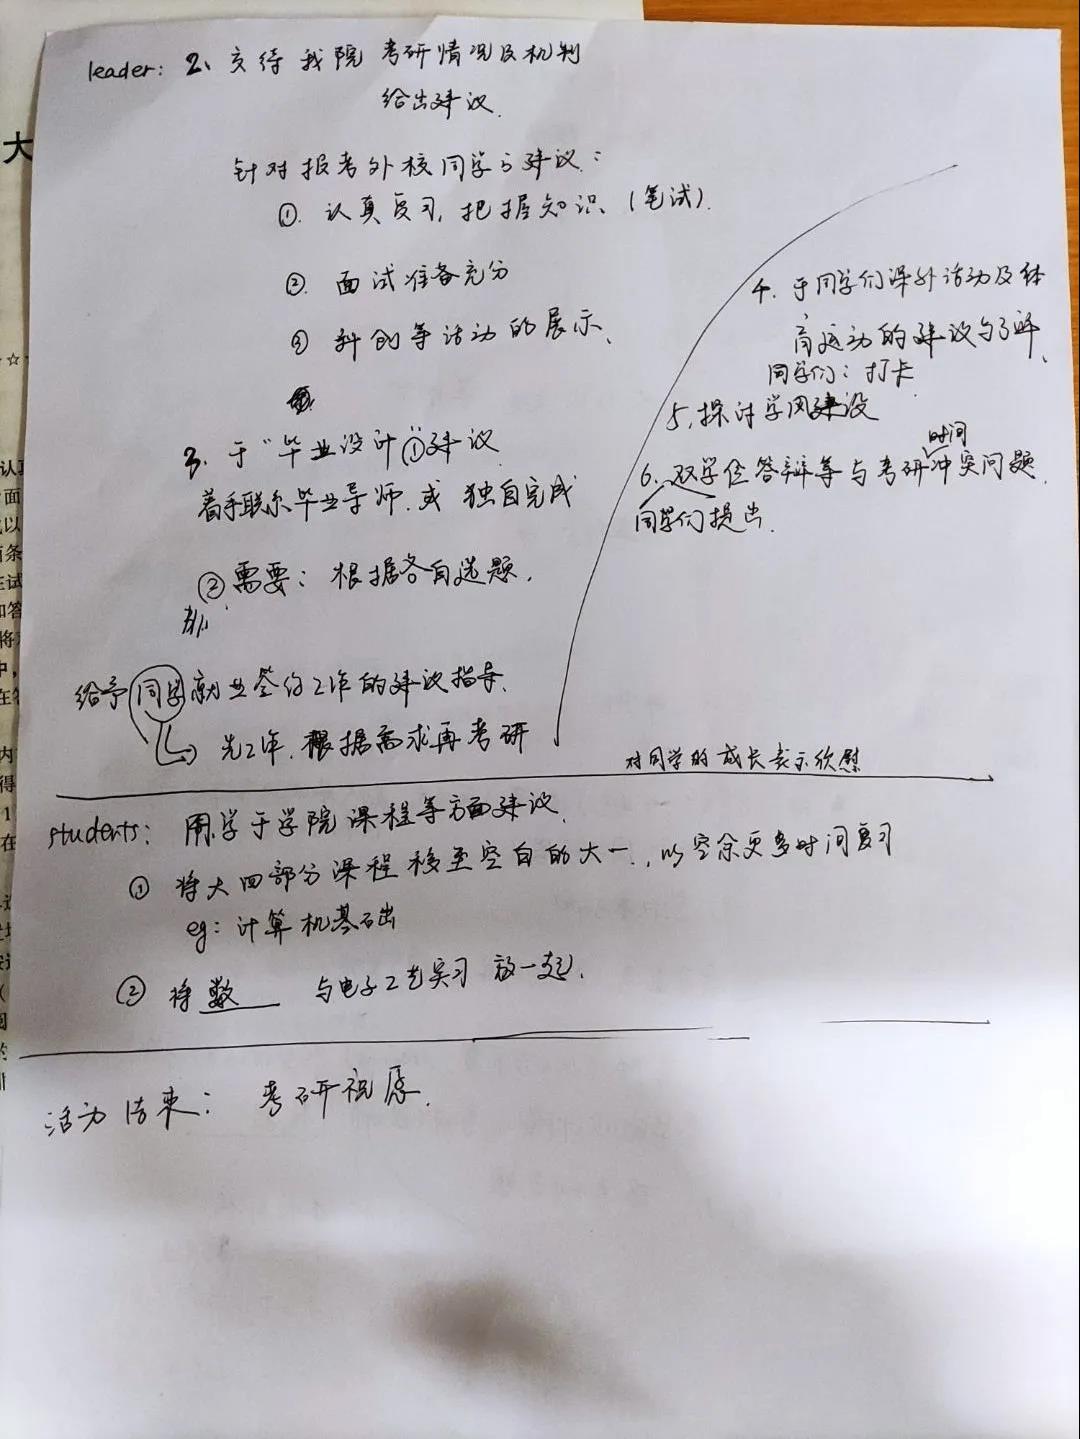 leader: 2、交待我院考研情况及机制
给出建议.
针对报考外校同学的建议:
①. 认真复习,把握知识、(笔试).
②. 面试准备充分
③ 科创等活动的展示、
3、于"毕业设计"①建议
着手联系毕业导师.或 独自完成
②需要:根据各自选题.
给予同学就业签约工作的建议指导.
先工作.根据需求再考研
4. 于同学们课外活动及体
育运动的建议与了解、
同学们:打卡
5、探讨学风建设
时间
6、双学位答辩等与考研冲突问题.
同学们提出.
对同学的成长表示欣慰
students: 同学于学院课程等方面建议.
① 将大四部分课程移至空白的大一.,以空余更多时间复习
eg: 计算机基础
② 将数 与电子工艺实习 放一起.
活动结束: 考研祝愿.
大